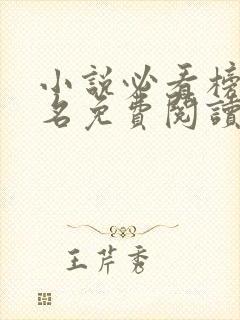 小說必看榜
名免費閱讀
王芹秀